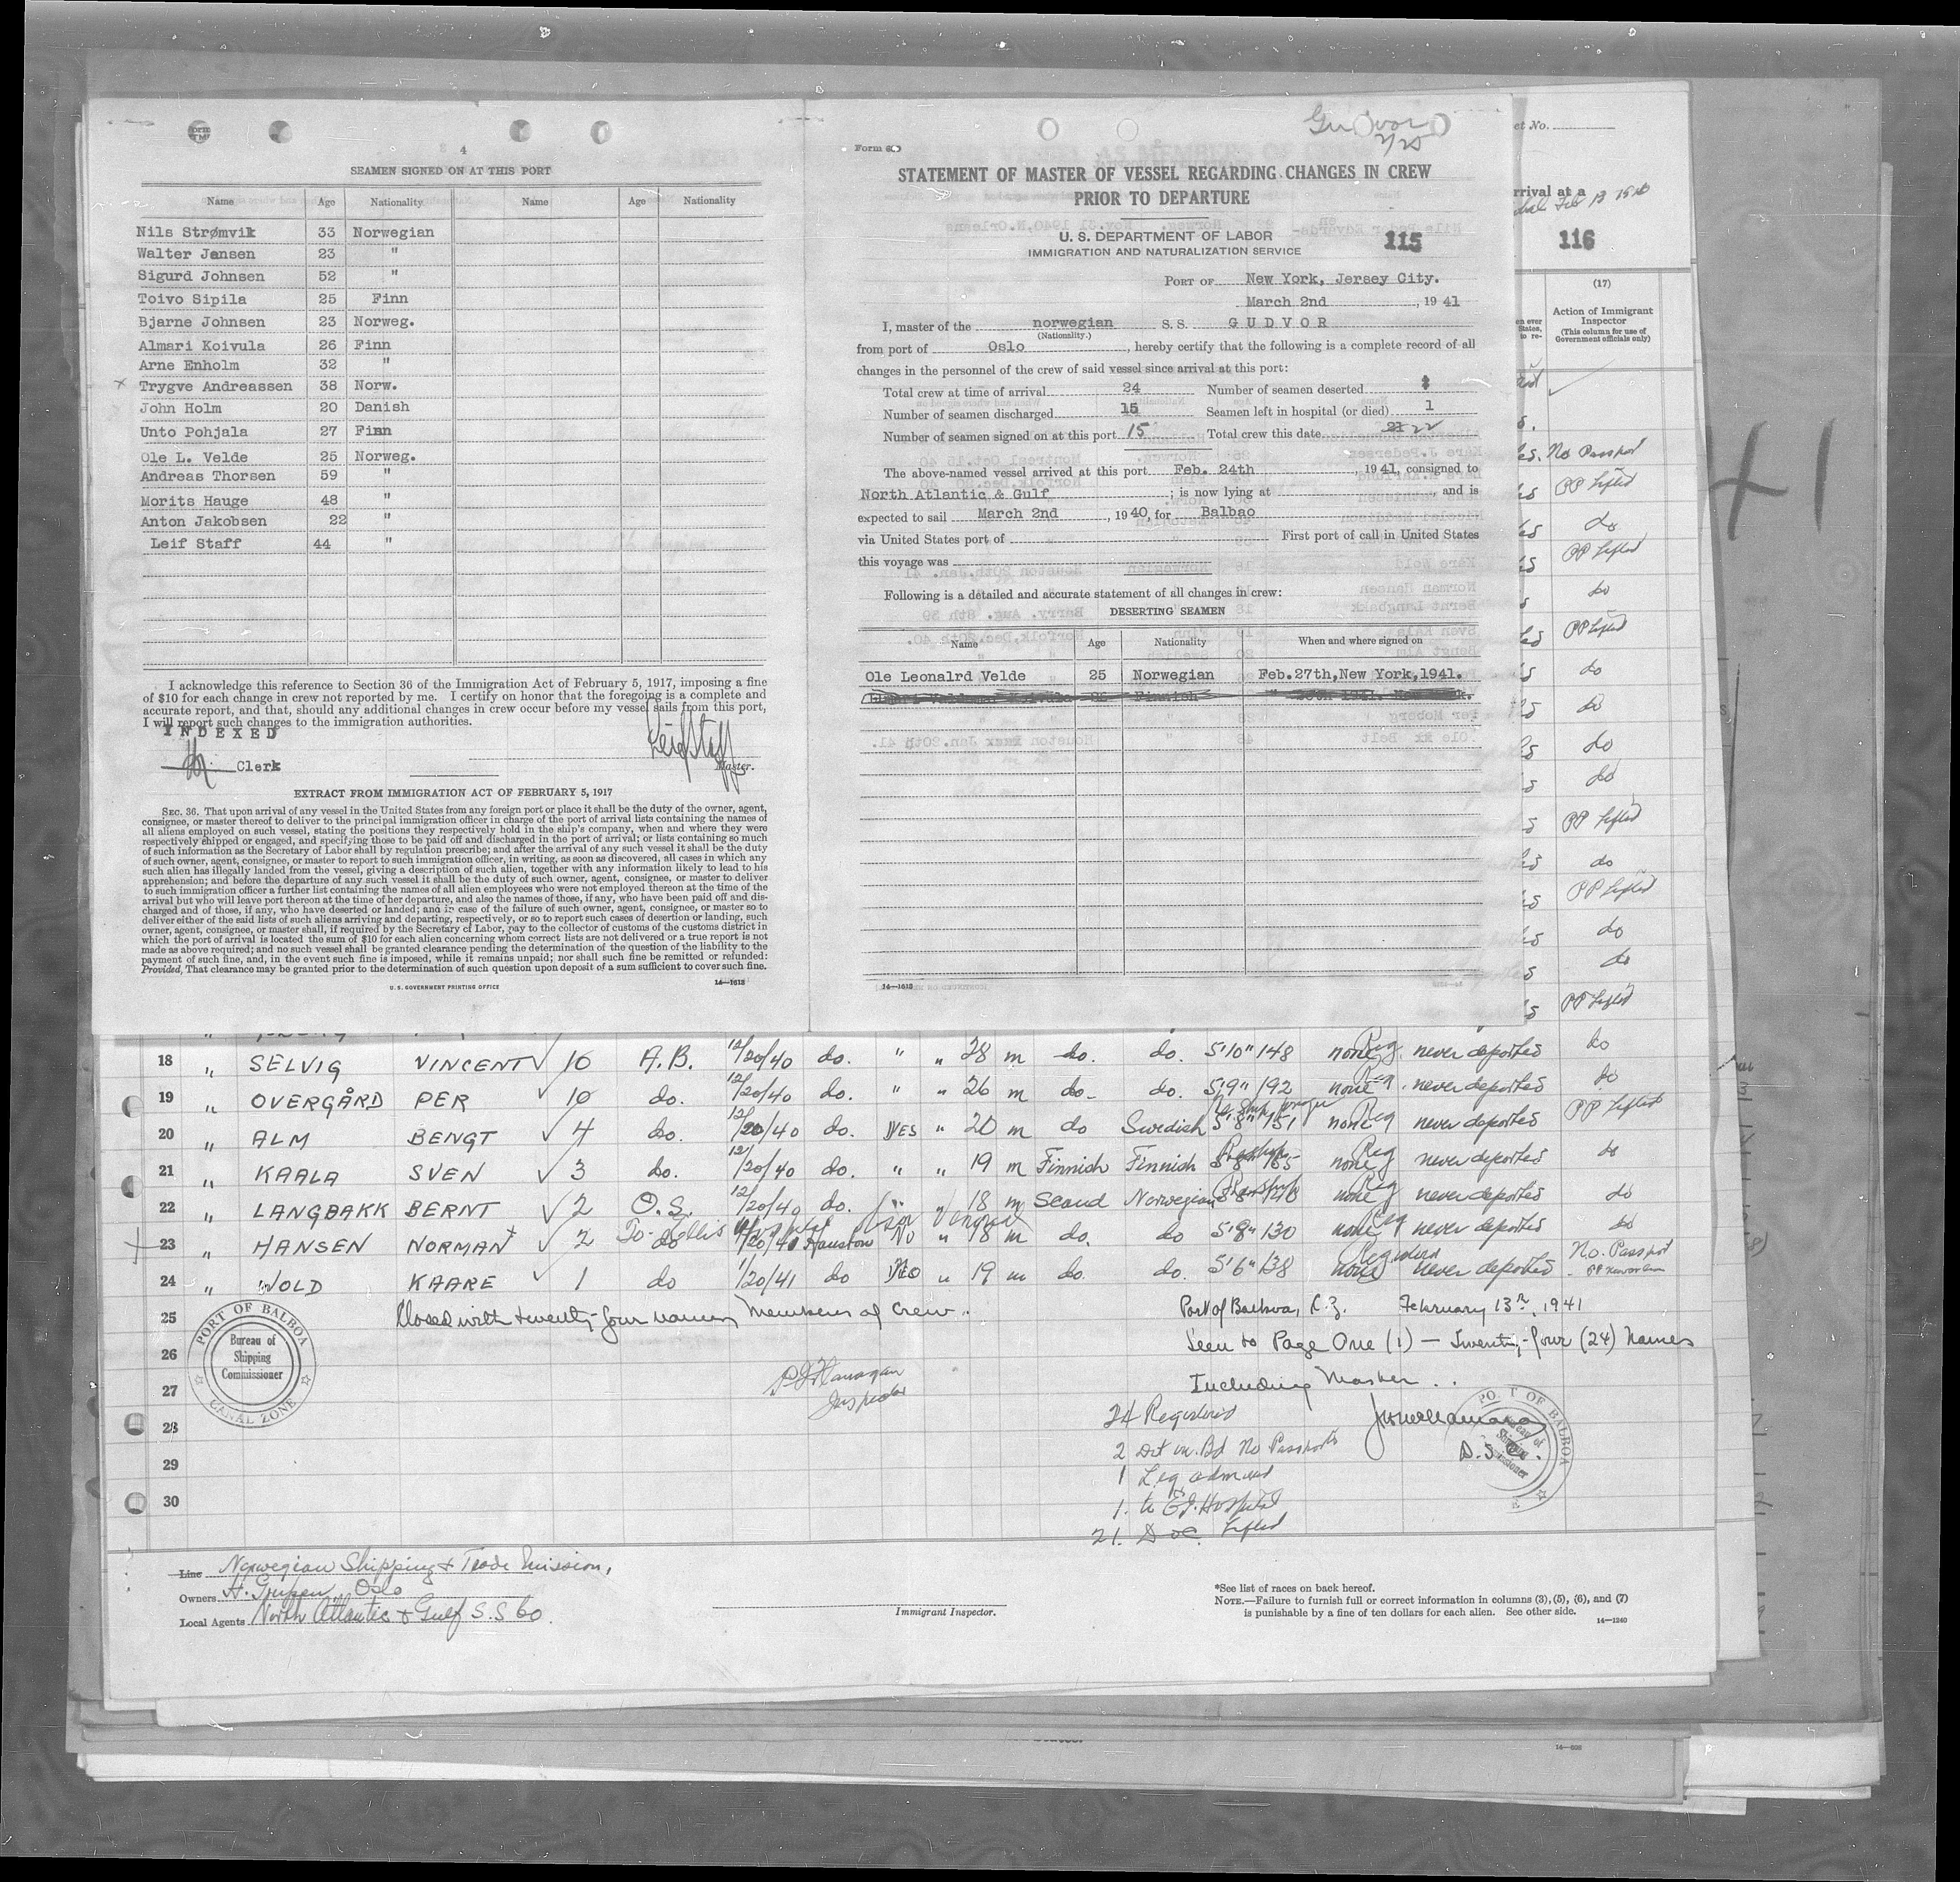 4
SEAMEN SIGNED ON AT THIS PORT
Name Age Nationality Name Age Nationality
Nils Strømvik 33 Norwegian
Walter Jensen 23 "
Sigurd Johnsen 52 "
Toivo Sipila 25 Finn
Bjarne Johnsen 23 Norweg.
Almari Koivula 26 Finn
Arne Enholm 32 "
x Trygve Andreassen 38 Norw.
John Holm 20 Danish
Unto Pohjala 27 Finn
Ole L. Velde 25 Norweg.
Andreas Thorsen 59 "
Morits Hauge 48 "
Anton Jakobsen 22 "
Leif Staff 44 "
I acknowledge this reference to Section 36 of the Immigration Act of February 5, 1917, imposing a fine
of $10 for each change in crew not reported by me. I certify on honor that the foregoing is a complete and
accurate report, and that, should any additional changes in crew occur before my vessel sails from this port,
I will report such changes to the immigration authorities.
INDEXED
Leif Staff
Clerk
Master.
EXTRACT FROM IMMIGRATION ACT OF FEBRUARY 5, 1917
SEC. 36. That upon arrival of any vessel in the United States from any foreign port or place it shall be the duty of the owner, agent,
consignee, or master thereof to deliver to the principal immigration officer in charge of the port of arrival lists containing the names of
all aliens employed on such vessel, stating the positions they respectively hold in the ship's company, when and where they were
respectively shipped or engaged, and specifying those to be paid off and discharged in the port of arrival; or lists containing so much
of such information as the Secretary of Labor shall by regulation prescribe; and after the arrival of any such vessel it shall be the duty
of such owner, agent, consignee, or master to report to such immigration officer, in writing, as soon as discovered, all cases in which any
such alien has illegally landed from the vessel, giving a description of such alien, together with any information likely to lead to his
apprehension; and before the departure of any such vessel it shall be the duty of such owner, agent, consignee, or master to deliver
to such immigration officer a further list containing the names of all alien employees who were not employed thereon at the time of the
arrival but who will leave port thereon at the time of her departure, and also the names of those, if any, who have been paid off and dis-
charged and of those, if any, who have deserted or landed; and in case of the failure of such owner, agent, consignee, or master so to
deliver either of the said lists of such aliens arriving and departing, respectively, or so to report such cases of desertion or landing, such
owner, agent, consignee, or master shall, if required by the Secretary of Labor, pay to the collector of customs of the customs district in
which the port of arrival is located the sum of $10 for each alien concerning whom correct lists are not delivered or a true report is not
made as above required; and no such vessel shall be granted clearance pending the determination of the question of the liability to the
payment of such fine, and, in the event such fine is imposed, while it remains unpaid; nor shall such fine be remitted or refunded:
Provided, That clearance may be granted prior to the determination of such question upon deposit of a sum sufficient to cover such fine.
U. S. GOVERNMENT PRINTING OFFICE 14—1613
Gudvor
2/25
Form 6
STATEMENT OF MASTER OF VESSEL REGARDING CHANGES IN CREW
PRIOR TO DEPARTURE
U. S. DEPARTMENT OF LABOR
IMMIGRATION AND NATURALIZATION SERVICE
115
PORT OF New York, Jersey City.
March 2nd, 1941
I, master of the norwegian S. S. GUDVOR
(Nationality.)
from port of Oslo, hereby certify that the following is a complete record of all
changes in the personnel of the crew of said vessel since arrival at this port:
Total crew at time of arrival 24 Number of seamen deserted
Number of seamen discharged 15 Seamen left in hospital (or died) 1
Number of seamen signed on at this port 15 Total crew this date 22
The above-named vessel arrived at this port Feb. 24th, 1941, consigned to
North Atlantic & Gulf; is now lying at , and is
expected to sail March 2nd, 1940, for Balbao
via United States port of First port of call in United States
this voyage was
Following is a detailed and accurate statement of all changes in crew:
DESERTING SEAMEN
Name Age Nationality When and where signed on
Ole Leonalrd Velde 25 Norwegian Feb.27th,New York,1941.
14—1613
ct No.
rrival at a
Feb 13 1941
116
(17)
Action of Immigrant
Inspector
(This column for use of
Government officials only)
No Passport
PP Lifted
do
PP Lifted
do
PP Lifted
do
do
do
do
PP Lifted
do
PP Lifted
do
do
PP Lifted
41
18 " SELVIG VINCENT √ 10 A.B. 12/20/40 do. " " 28 m do. do. 5'10" 148 none Reg. never deported do
19 " OVERGÅRD PER √ 10 do. 12/20/40 do. " " 26 m do. do. 5'9" 192 none Reg. never deported do
20 " ALM BENGT √ 4 do. 12/20/40 do. YES " 20 m do Swedish 5'8" 151 none Reg never deported PP Lifted
21 " KAALA SVEN √ 3 do. 12/20/40 do. " " 19 m Finnish Finnish 5'8" 165 none Reg never deported do
22 " LANGBAKK BERNT √ 2 O.S. 12/20/40 do. " " 18 m Scand Norwegian 5'8" 140 none Reg never deported do
23 " HANSEN NORMAN √ 2 do 1/20/41 Houston No " 18 m do. do 5'8" 130 none Reg never deported do
24 " WOLD KAARE √ 1 do 1/20/41 do " 19 m do. do. 5'6" 138 none Registered never deported No. Passport
25 Closed with twenty-four names, Members of Crew. Port of Balboa, C.Z. February 13th, 1941
26 Seen to Page One (1) — Twenty-four (24) names
27 Including Master
28
29
30
PORT OF BALBOA
Bureau of
Shipping
Commissioner
CANAL ZONE
P J Flanagan
Inspector
24 Registered
2 Det on Bd No Passports
1 Leg admitted
1. to E.I. Hospital
21. Doc Lifted
D.S.C.
PORT OF BALBOA
Line Norwegian Shipping & Trade Mission,
Owners Oslo
Local Agents North Atlantic & Gulf S.S Co.
Immigrant Inspector.
*See list of races on back hereof.
NOTE.—Failure to furnish full or correct information in columns (3), (5), (6), and (7)
is punishable by a fine of ten dollars for each alien. See other side.
14—1240